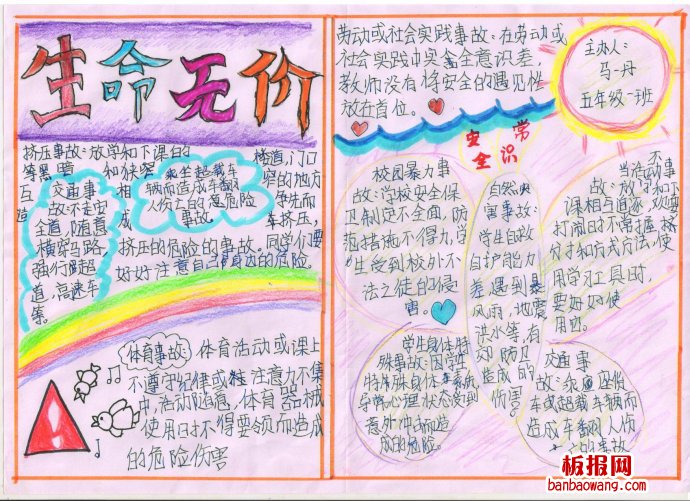 生命无价
挤压事故：放学和下课的
等黑暗
和狭窄
楼道，门口
窄的地方
互
相
争先而
造
成
车挤压，
挤压的危险的事故。同学们要
好好注意自己身边的危险
乘坐超载车
辆而造成车翻
人伤亡的危险
事故。
交通事
故：不走安
全道，随意
横穿马路，
强行超
道，高速车
等。
体育事故：体育活动或课上
不遵守纪律或 注意力不集
中，活动随意，体育器械
使用时不得要领而造成
的危险伤害
劳动或社会实践事故：在劳动或
社会实践中安全意识差，
教师没有将安全的
放在首位。
主办人：
马丹
五年级一班
安全常识
校园暴力事
故：学校安全保
卫制定不全面，防
范措施不得力，学
生受到校外不
法之徒的侵
害。
自然灾
害事故：
学生自救
自护能力
差，遇到暴
风雨，地震
洪水等，有
动防卫
造成的
伤害。
不
当活动事
故：放学和下
课相互追逐
打闹时不常握
分寸和方式方法，使
用学习工具时
要好好使
用
学生身体特
殊事故：因学生
特殊身体疾病
导 心理状态受到
意外冲击而造
成的危险。
交通事
故：乘座
车或超载车辆而
造成车翻人伤
亡的事故
板报网
banbaowang.com